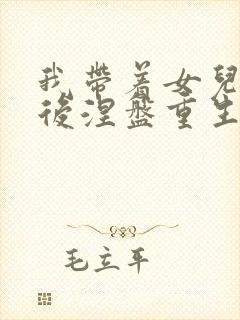 我带着女兒
後涅盤重生
毛立平